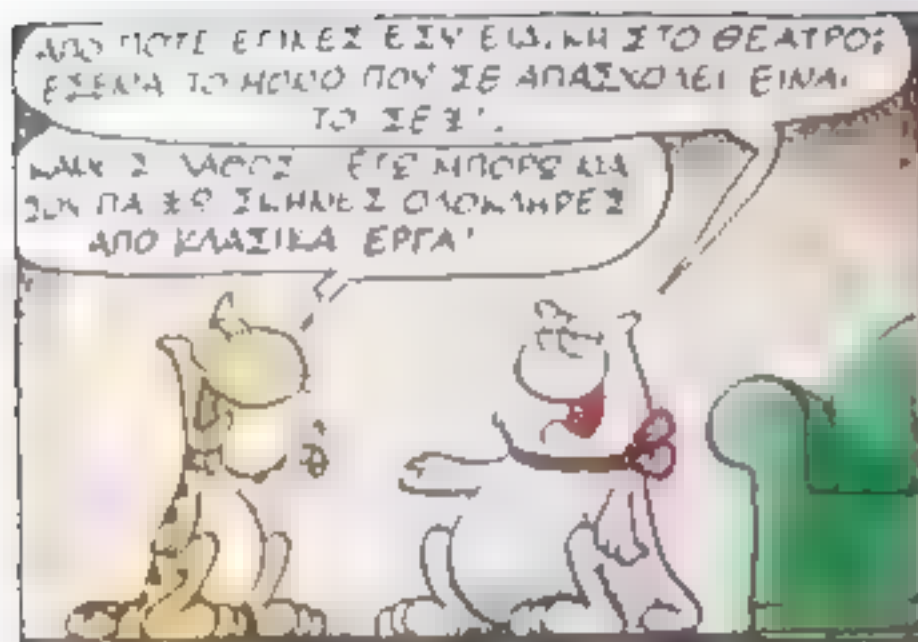 ΑΠΟ ΠΟΤΕ ΕΓΙΝΕΣ ΕΣΥ ΕΙΔΙΚΗ ΣΤΟ ΘΕΑΤΡΟ;
ΕΣΕΝΑ ΤΟ ΜΟΝΟ ΠΟΥ ΣΕ ΑΠΑΣΧΟΛΕΙ ΕΙΝΑΙ
ΤΟ ΣΕΞ!
ΚΑΝΕΙΣ ΛΑΘΟΣ ΕΓΩ ΜΠΟΡΩ ΝΑ
ΣΟΥ ΠΑΙΞΩ ΣΚΗΝΕΣ ΟΛΟΚΛΗΡΕΣ
ΑΠΟ ΚΛΑΣΙΚΑ ΕΡΓΑ!